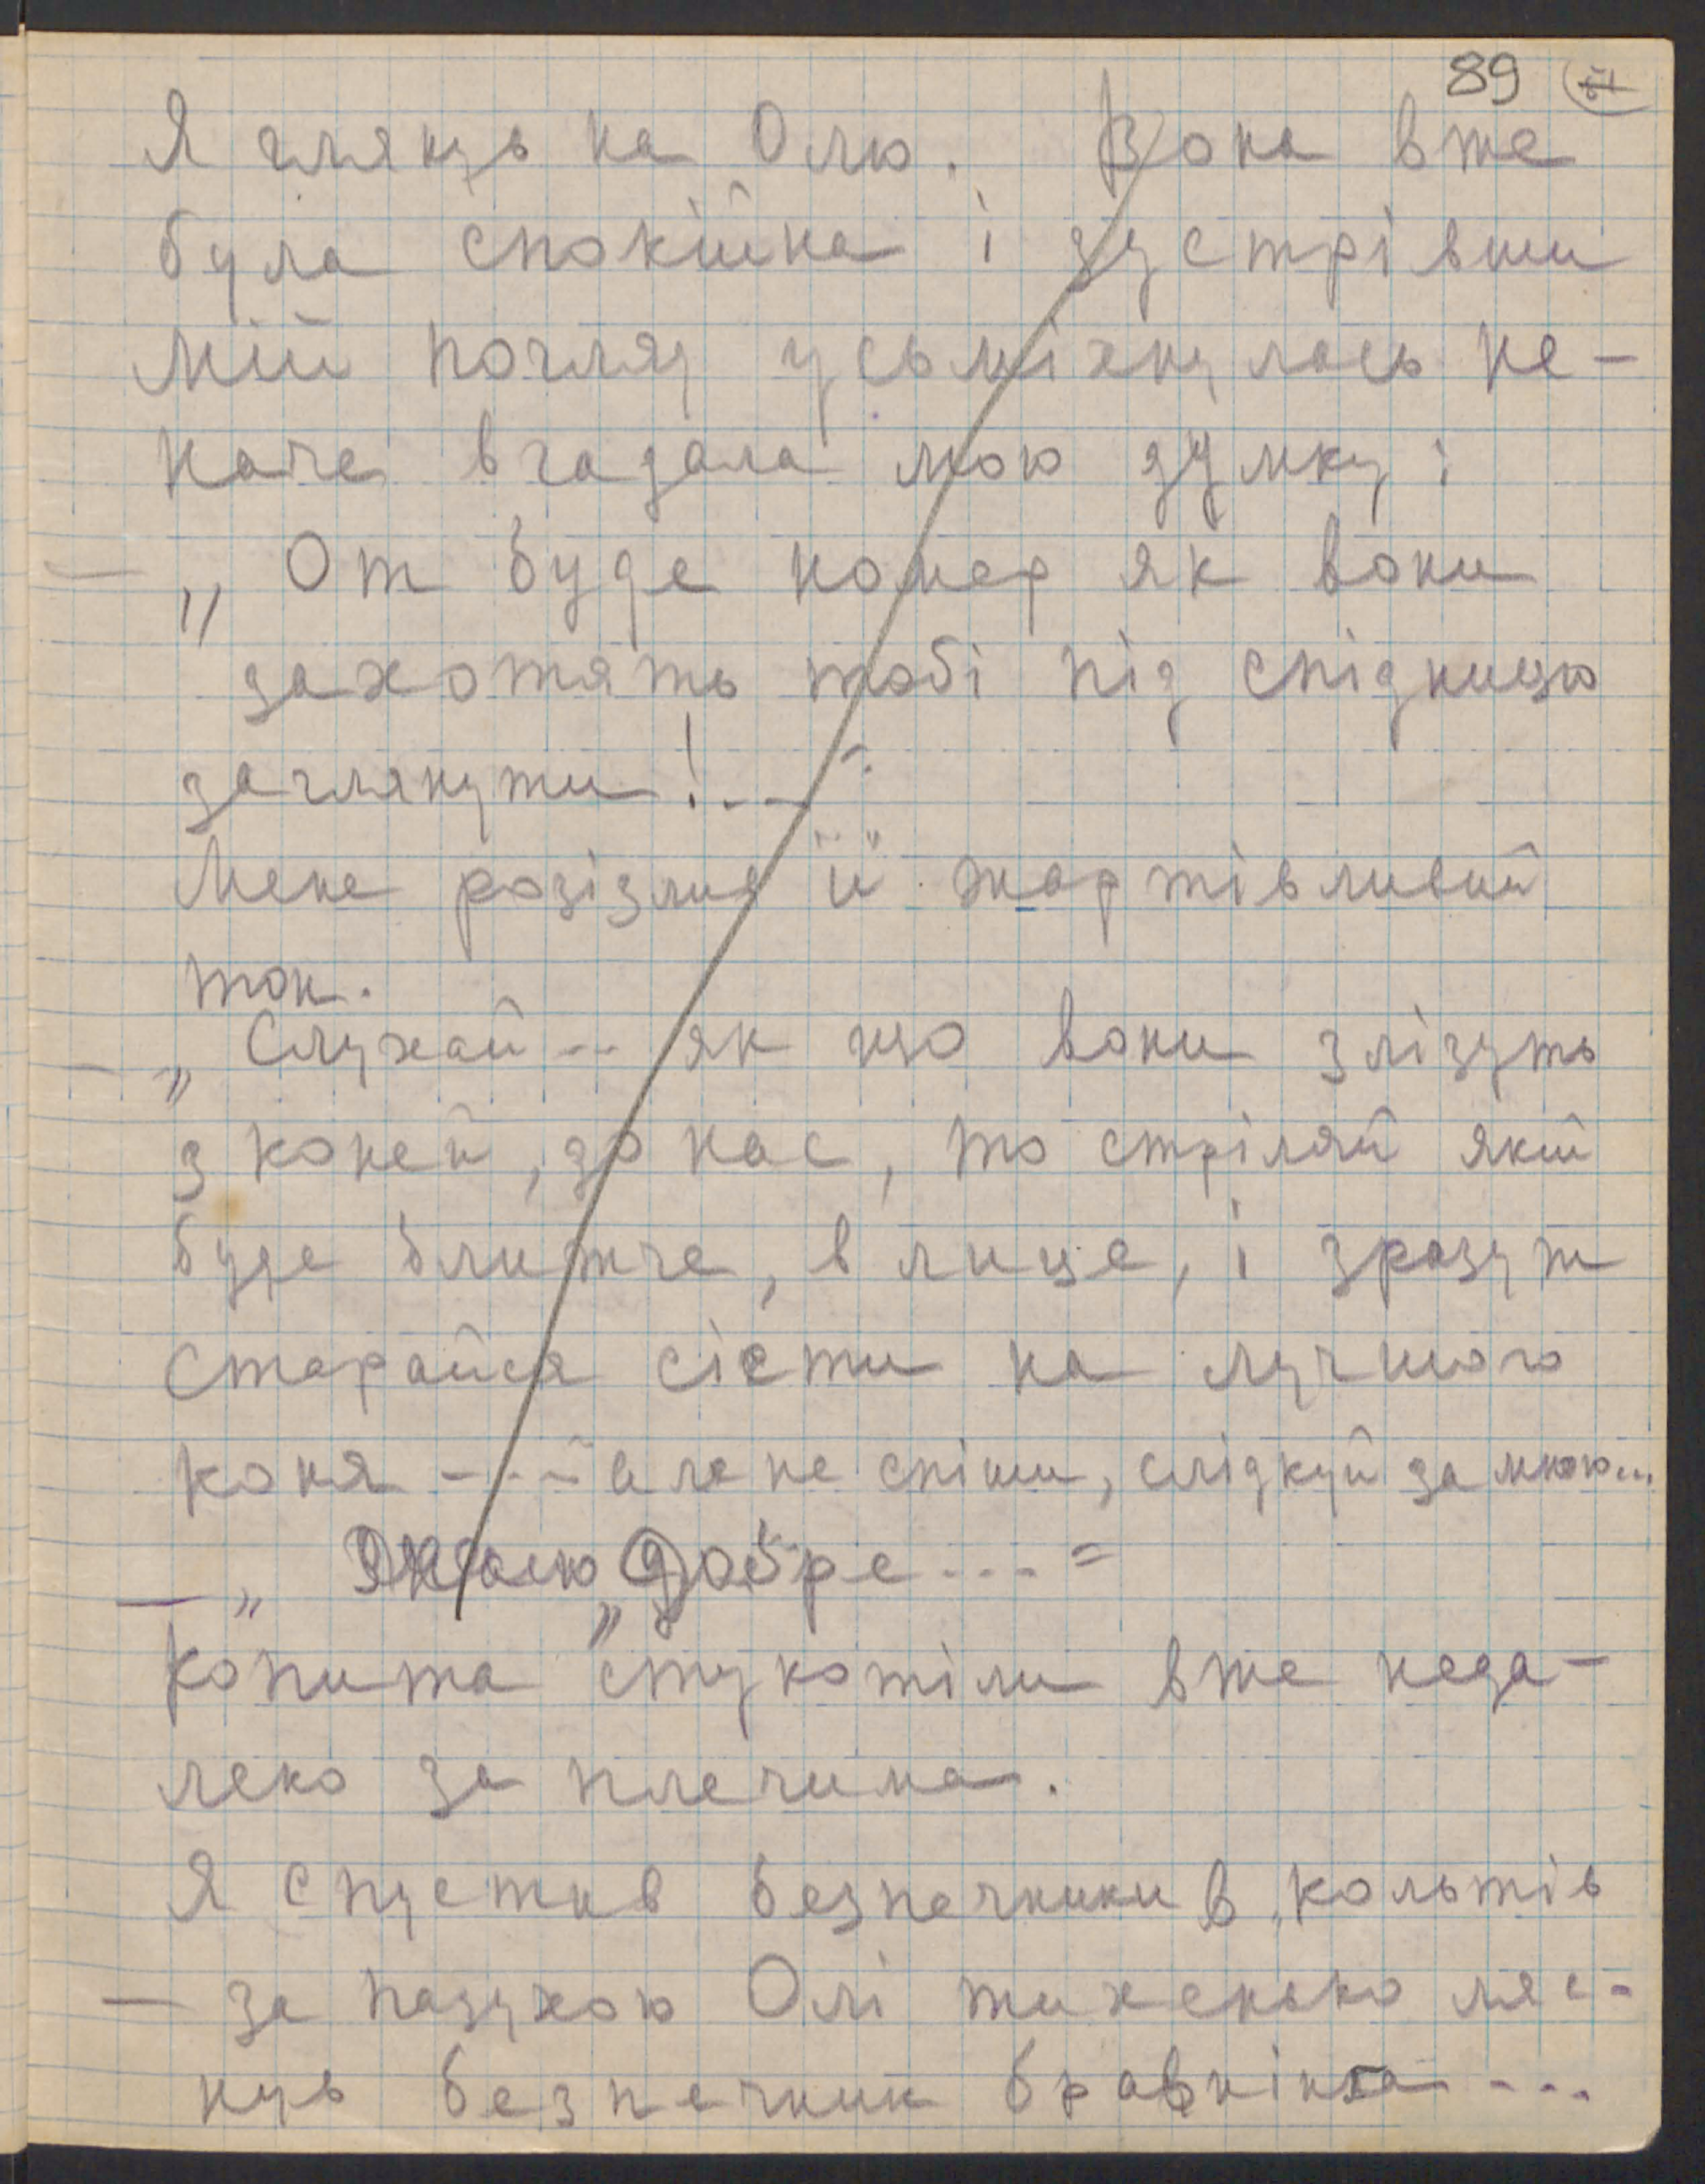 89
Я глянув на Олю. Вона вже
була спокійна і зустрівши
мій погляд усьміхнулась не-
наче вгадала мою думку:
— „От буде номер як вони
захотять тобі під спідницю
заглянути!.. —"
Мене розізлив її жартівливий
тон.
— „Слухай.. як що вони злізуть
з коней, до нас, то стріляй який
буде ближче, в лице, і зразуж
старайся сісти на лучшого
коня --- але не спіши, слідкуй за мною...
— „ „Добре .... =
Копита стукотіли вже неда-
леко за плечима.
Я спустив безпечники в кольтів
— за пазухою Олі тихенько ляс-
нув безпечник бравнінга ...